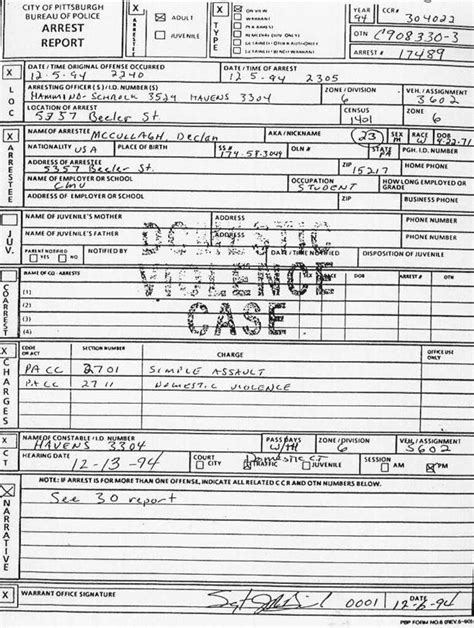 CITY OF PITTSBURGH
BUREAU OF POLICE
ARREST
REPORT
ARRESTEE
X ADULT
JUVENILE
TYPE
X ON VIEW
WARRANT
YEAR 94 CCR# 304022
OTN C908330-3
ARREST # 17489
X DATE/TIME ORIGINAL OFFENSE OCCURRED DATE/TIME OF ARREST
12.5.94 2240 12.5.94 2305
LOC
ARRESTING OFFICER(S)/I.D. NUMBER ZONE/DIVISION VEH./ASSIGNMENT
3524 HAVENS 3304 6 3602
LOCATION OF ARREST CENSUS ZONE
5357 Beeler St. 1401 6
X NAME OF ARRESTEE AKA/NICKNAME SEX RACE DOB
MCCULLAGH, Declan 23 M W
ARRESTEE
NATIONALITY USA PLACE OF BIRTH SS# OLN # STATE PA PGH. I.D. NUMBER
ADDRESS OF ARRESTEE ZIP HOME PHONE
5357 Beeler St. 15217
NAME OF EMPLOYER OR SCHOOL OCCUPATION HOW LONG EMPLOYED OR GRADE
CMU STUDENT
ADDRESS OF EMPLOYER OR SCHOOL ZIP BUSINESS PHONE
JUV.
NAME OF JUVENILE'S MOTHER ADDRESS PHONE NUMBER
NAME OF JUVENILE'S FATHER ADDRESS PHONE NUMBER
PARENT NOTIFIED NOTIFIED BY DATE/TIME NOTIFIED DISPOSITION OF JUVENILE
YES NO
DOMESTIC
VIOLENCE
CASE
COARREST
NAME OF CO-ARRESTS SEX RACE DOB ARREST # OTN
(1)
(2)
(3)
(4)
X CODE OR ACT SECTION NUMBER CHARGE OFFICE USE ONLY
CHARGES
PACC 2701 SIMPLE ASSAULT
PACC 2711 DOMESTIC VIOLENCE
X NAME OF CONSTABLE/I.D. NUMBER PASS DAYS ZONE/DIVISION VEH./ASSIGNMENT
HAVENS 3304 W/TH 6 3602
CT
HEARING DATE COURT SESSION
12-13-94 Domestic CT
CITY TRAFFIC JUVENILE AM PM
X NOTE: IF ARREST IS FOR MORE THAN ONE OFFENSE, INDICATE ALL RELATED CCR AND OTN NUMBERS BELOW.
NARRATIVE
See 30 report
X WARRANT OFFICE SIGNATURE I.D. DATE
Sgt 0001 12-6-94
PBP FORM NO.8